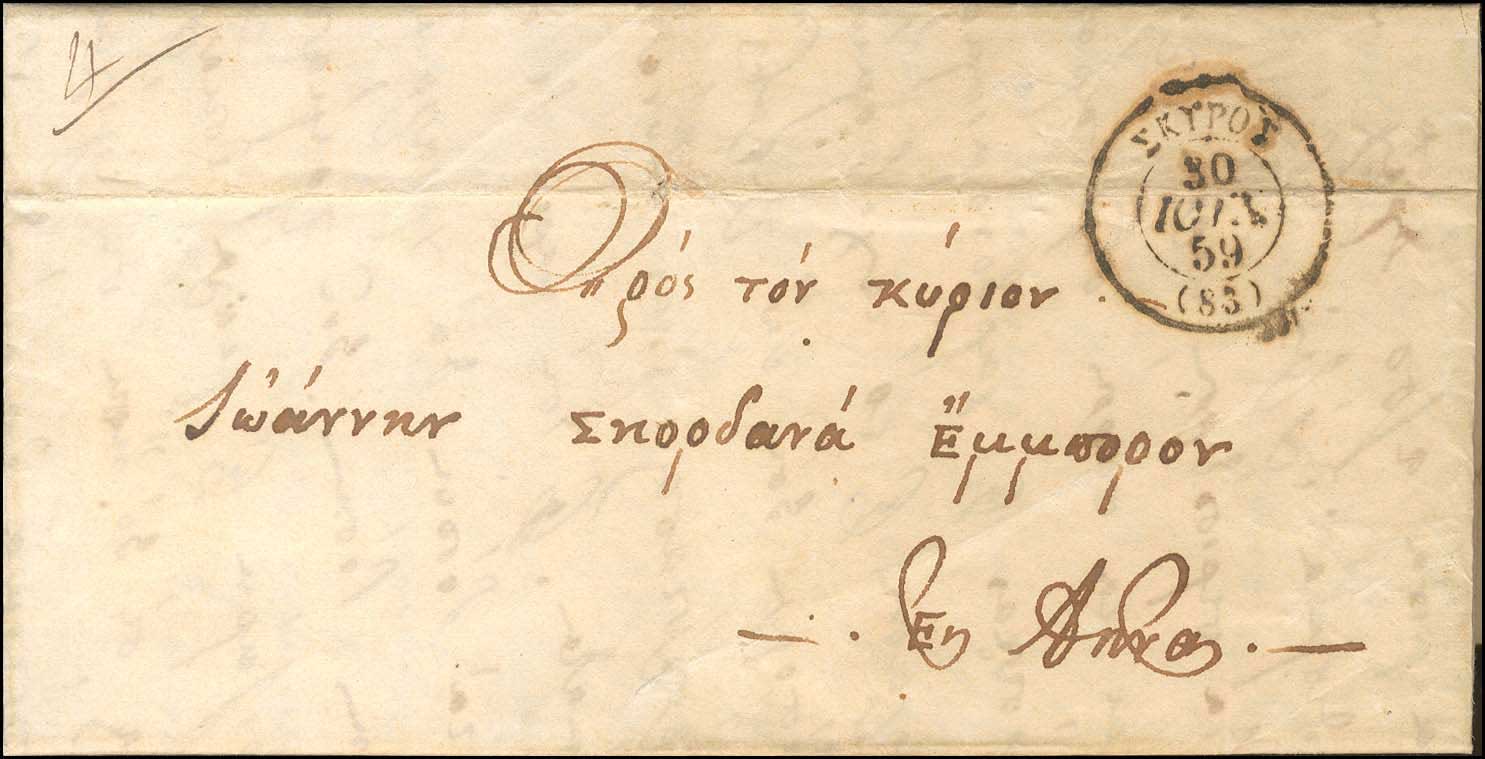 4
ΣΚΥΡΟΣ
30
ΙΟΥΛ
59
(83)
Πρός τόν κύριον
Ἰωάννην Σκορδανά Ἔμμπορον
Εη